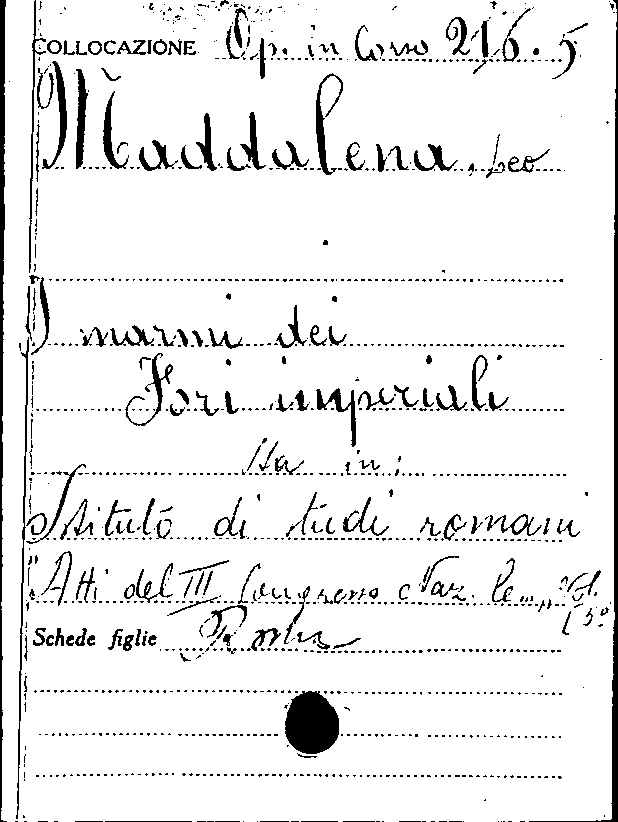 COLLOCAZIONE Op. in Corso 216.5
Maddalena, Leo
I marmi dei
Fori imperiali
Sta in:
Istituto di studi romani
"Atti del III Congresso Naz.le..., Vol.
5º
Schede figlie Roma